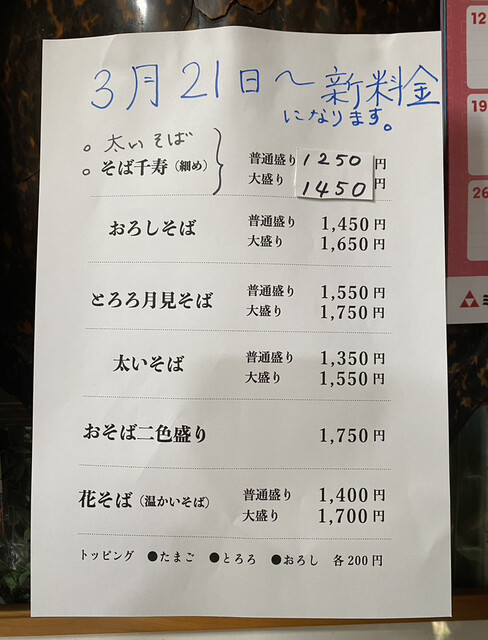 3月21日〜新料金
になります。
。太いそば
。そば千寿（細め） 普通盛り 1250円
大盛り 1450円
おろしそば 普通盛り 1,450円
大盛り 1,650円
とろろ月見そば 普通盛り 1,550円
大盛り 1,750円
太いそば 普通盛り 1,350円
大盛り 1,550円
おそば二色盛り 1,750円
花そば（温かいそば） 普通盛り 1,400円
大盛り 1,700円
トッピング ●たまご ●とろろ ●おろし 各200円
12
19
26